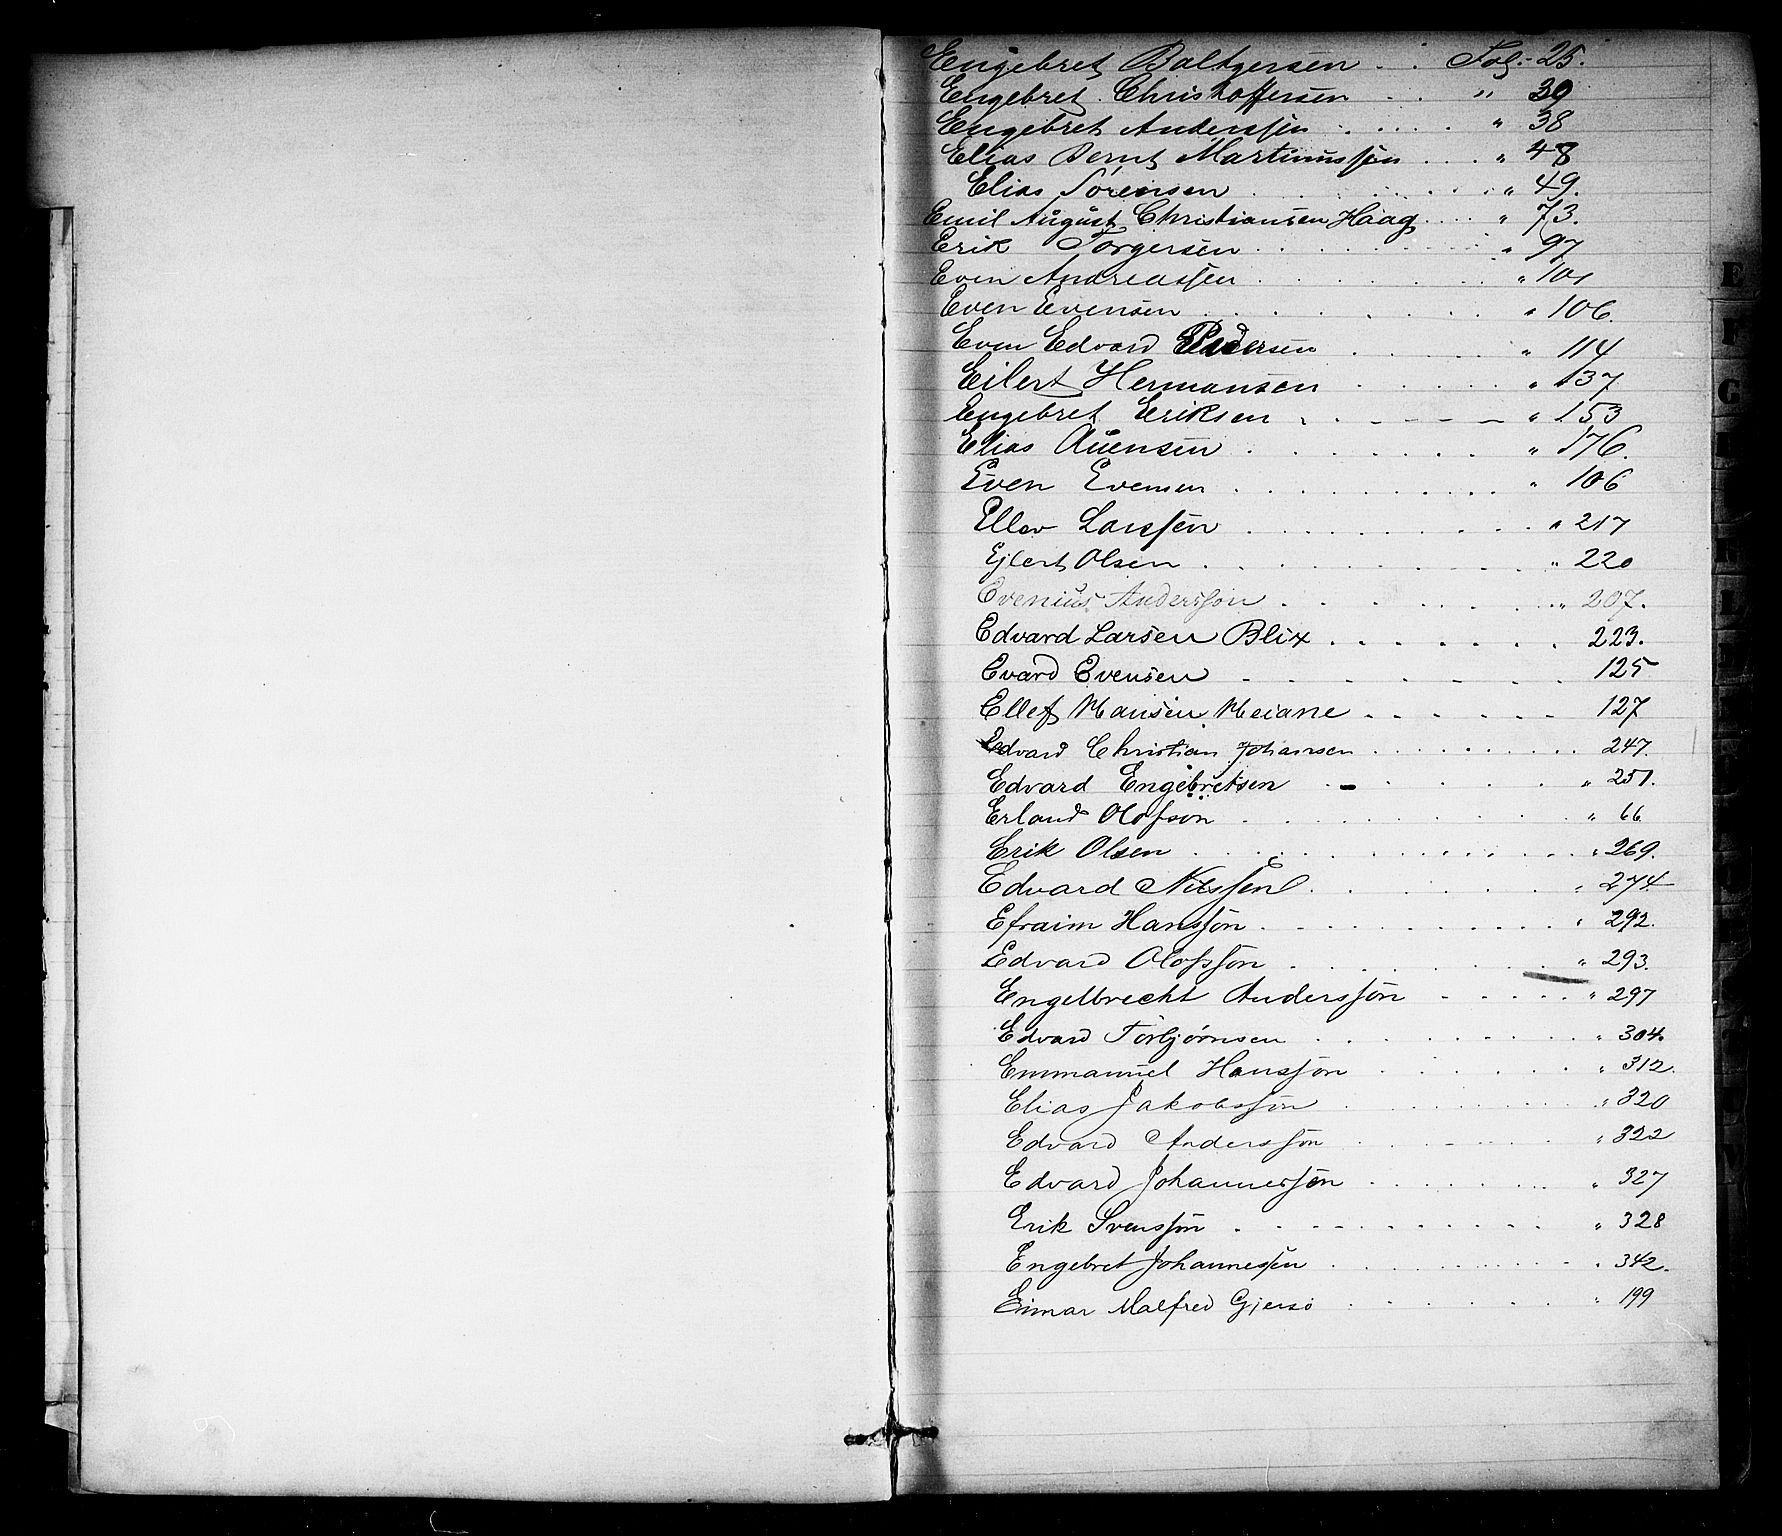 Engebret Baltzersen . . Fol. 25.
Engebret Christoffersen . . " 39
Engebret Anderssen . . . . . " 38
Elias Bernt Martinussen . . . " 48
Elias Sørensen . . . . . " 49.
Emil August Christiansen Haag . . . " 73.
Erik Torgersen . . . . . " 97
Even Andreassen . . . . . " 101
Even Evensen . . . . . " 106.
Even Edvard Pedersen . . . . " 114
Eilert Hermansen . . . . " 137
Engebret Eriksen . . . . " 153
Elias Auensen . . . . . " 176.
Even Evensen . . . . . " 106
Ellev Larssen . . . . . " 217
Ejlert Olsen . . . . . " 220
Evenius Andersson . . . . . " 207.
Edvard Larsen Blix . . . . . 223.
Evard Evensen . . . . . 125
Ellef Hansen Heiane . . . . . 127
Edvard Christian Johansen . . . . . 247.
Edvard Engebretsen . - . . " 251.
Erland Olofson . . . . . " 66
Erik Olsen . . . . . " 269.
Edvard Nilssen . . . . . " 274
Efraim Hansson . . . . . " 292.
Edvard Olofsson . . . . . " 293.
Engelbrecht Andersson . . . . . " 297
Edvard Torbjørnsen . . . . . " 304.
Emmanuel Hansson . . . . . " 312.
Elias Jakobsson . . . . . " 320
Edvard Andersson . . . . . " 322
Edvard Johannessen . . . . . " 327
Erik Svensson . . . . . " 328
Engebret Johannessen . . . . . " 342.
Einar Malfred Gjersø . . . . . " 199
E
F
G